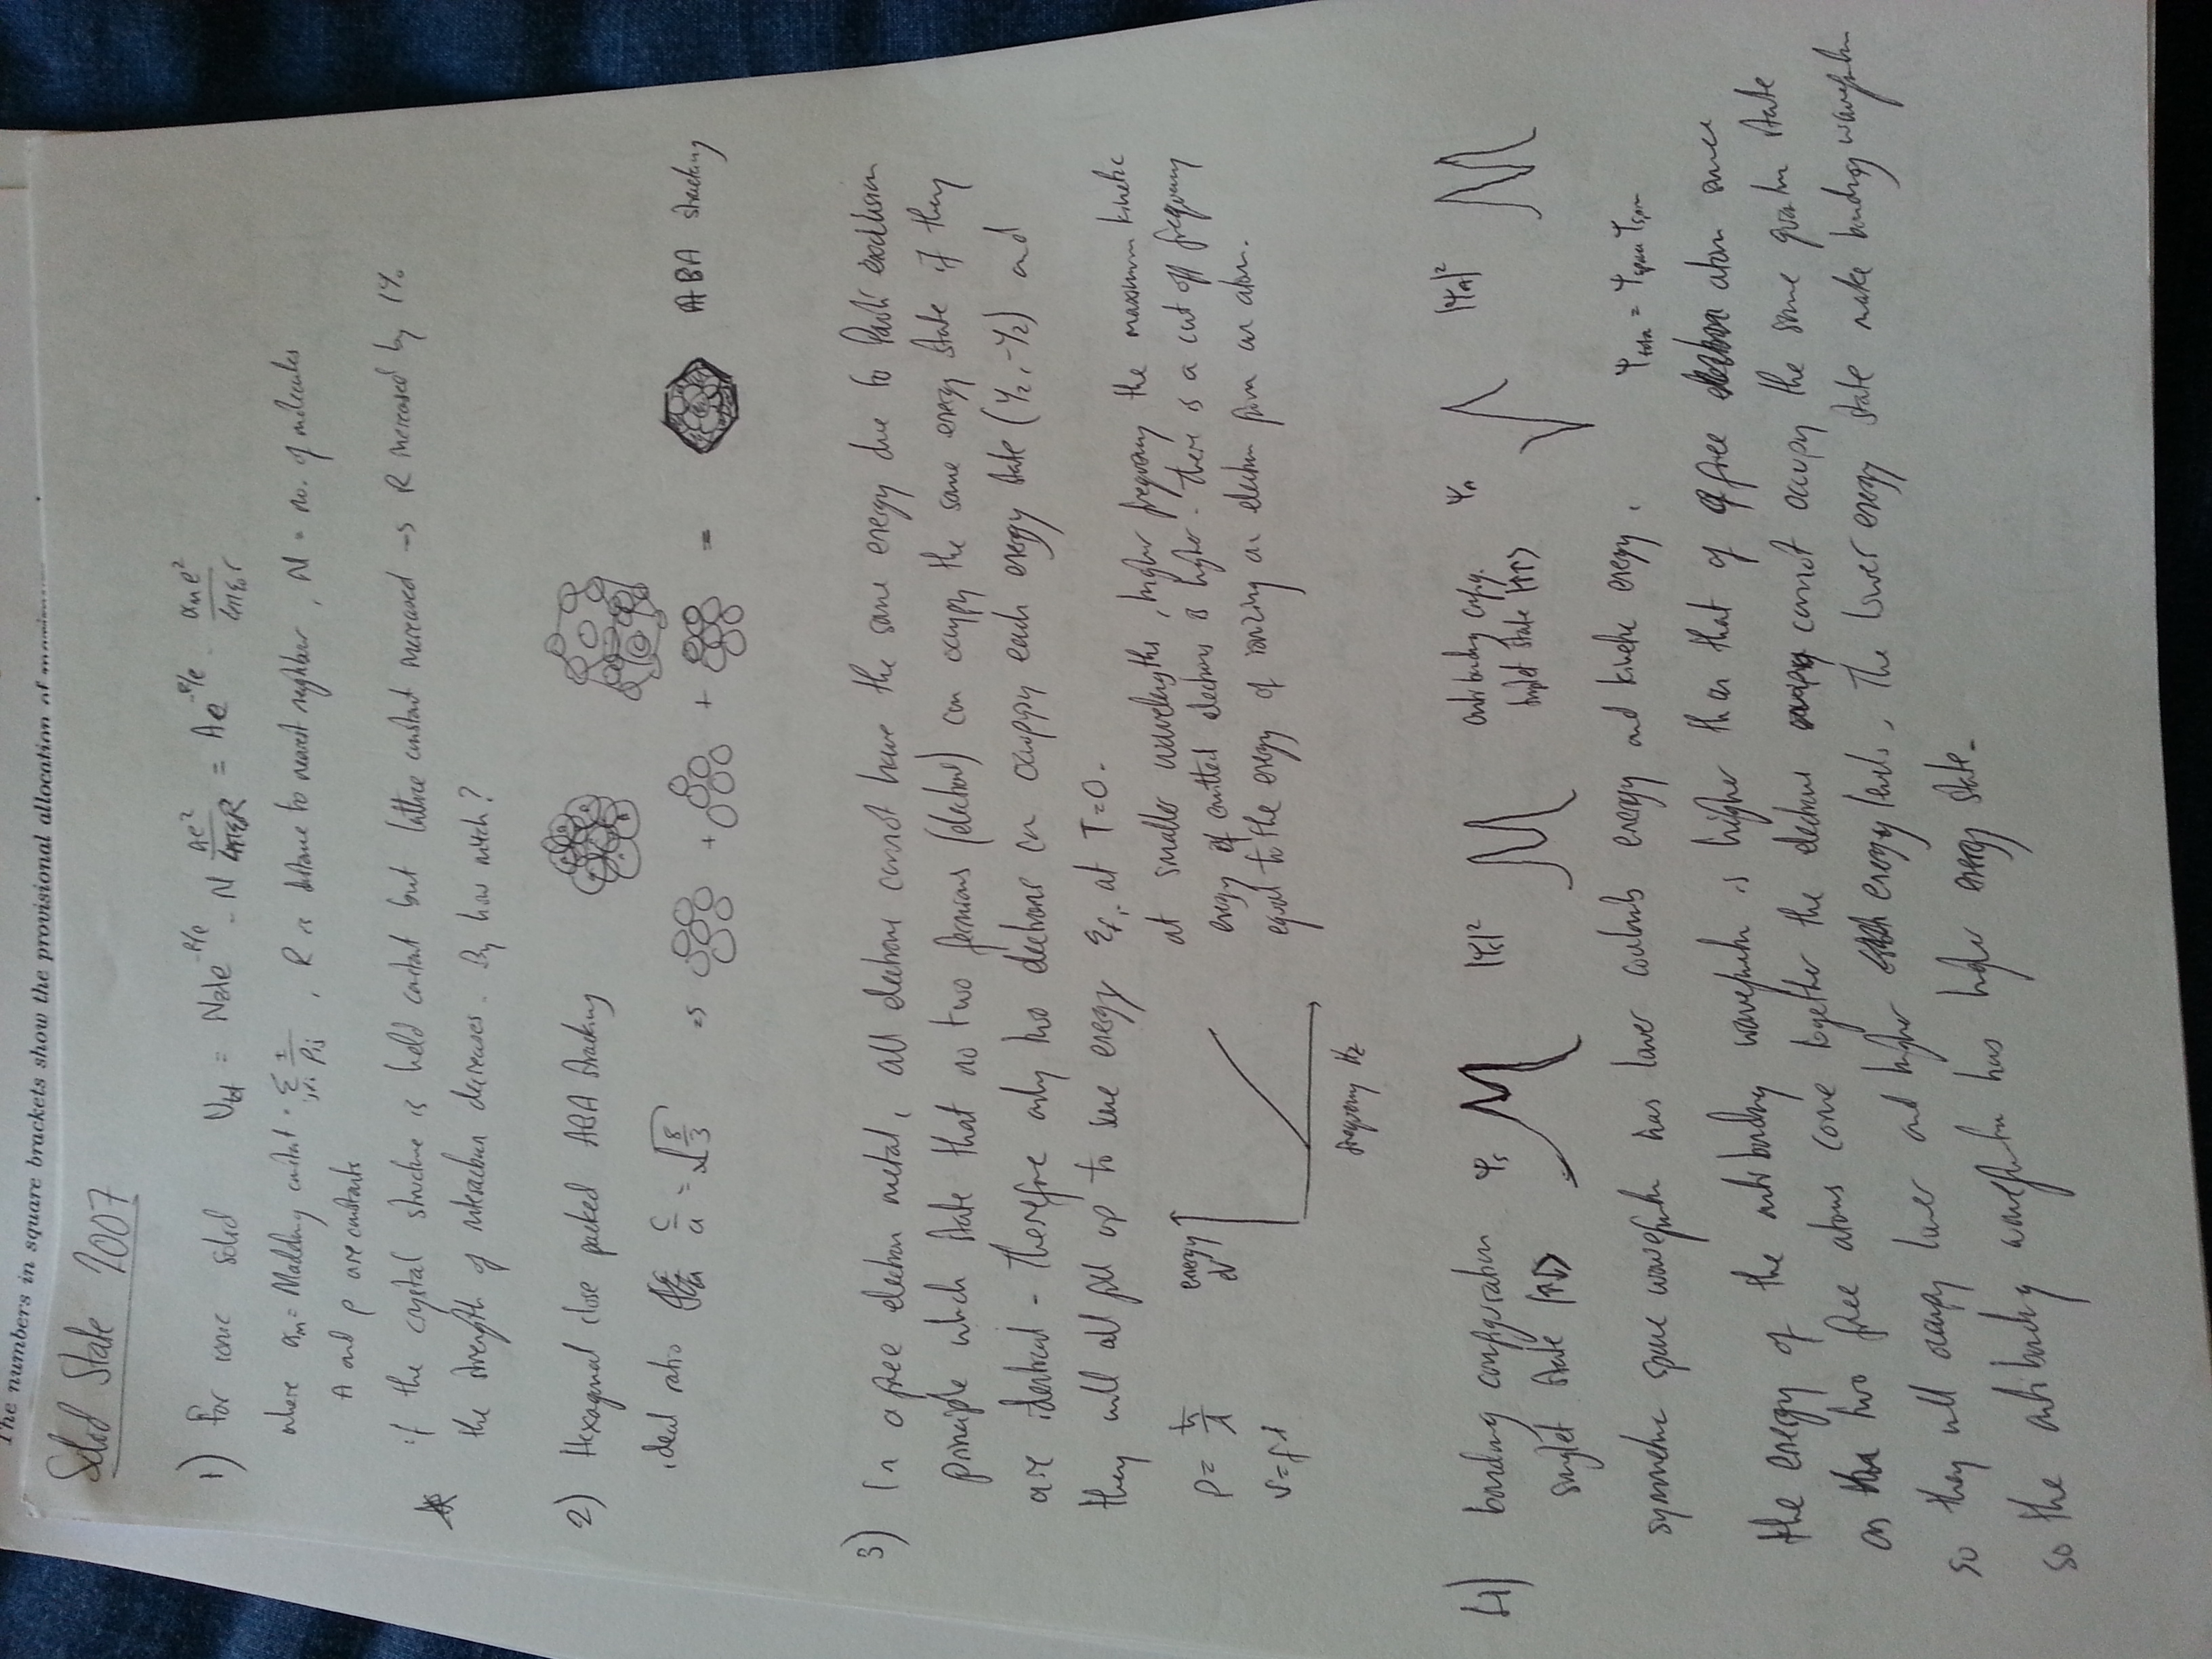 The numbers in square brackets show the provisional allocation of
Solid State 2007
1) For ionic solid U_tot = Nzλe^-R/ρ - N αe²/4πε₀R = Ae^-R/ρ - α_m e²/4πε₀r
where α_m = Madelung constant = Σ_j≠i ±/P_ij , R is distance to nearest neighbour , N = no. of molecules
A and ρ are constants
if the crystal structure is held constant but lattice constant increased → R increased by 1%
the strength of interaction decreases. By how much?
2) Hexagonal close packed ABA stracking
ideal ratio c/a = √8/3 => + + = ABA stracking
3) In a free electron metal, all electrons cannot have the same energy due to Pauli exclusion
principle which state that no two fermions (electrons) can occupy the same energy state if they
are identical - therefore only two electrons can occuppy each energy state (1/2, -1/2) and
they will all fill up to some energy ε_f, at T=0.
at smaller wavelengths, higher frequency the maximum kinetic
energy of emitted electrons is higher - there is a cut off frequency
equal to the energy of ionizing an electron from an atom.
p = ħ/λ
v = fλ
energy
eV
frequency Hz
4) bonding configuration ψ_s |ψ_s|² antibonding config. ψ_A |ψ_A|²
singlet state |↑↓> triplet state |↑↑>
symmetric space wavefuntn has lower coulomb energy and kinetic energy. ψ_total = ψ_space ψ_spin
the energy of the antibonding wavefuntn is higher than that of a free atom since
as two free atoms come together the electrons cannot occupy the same quantum state
so they will occupy lower and higher energy levels. The lower energy state make bonding wavefuntn
so the antibonding wavefuntn has higher energy state.